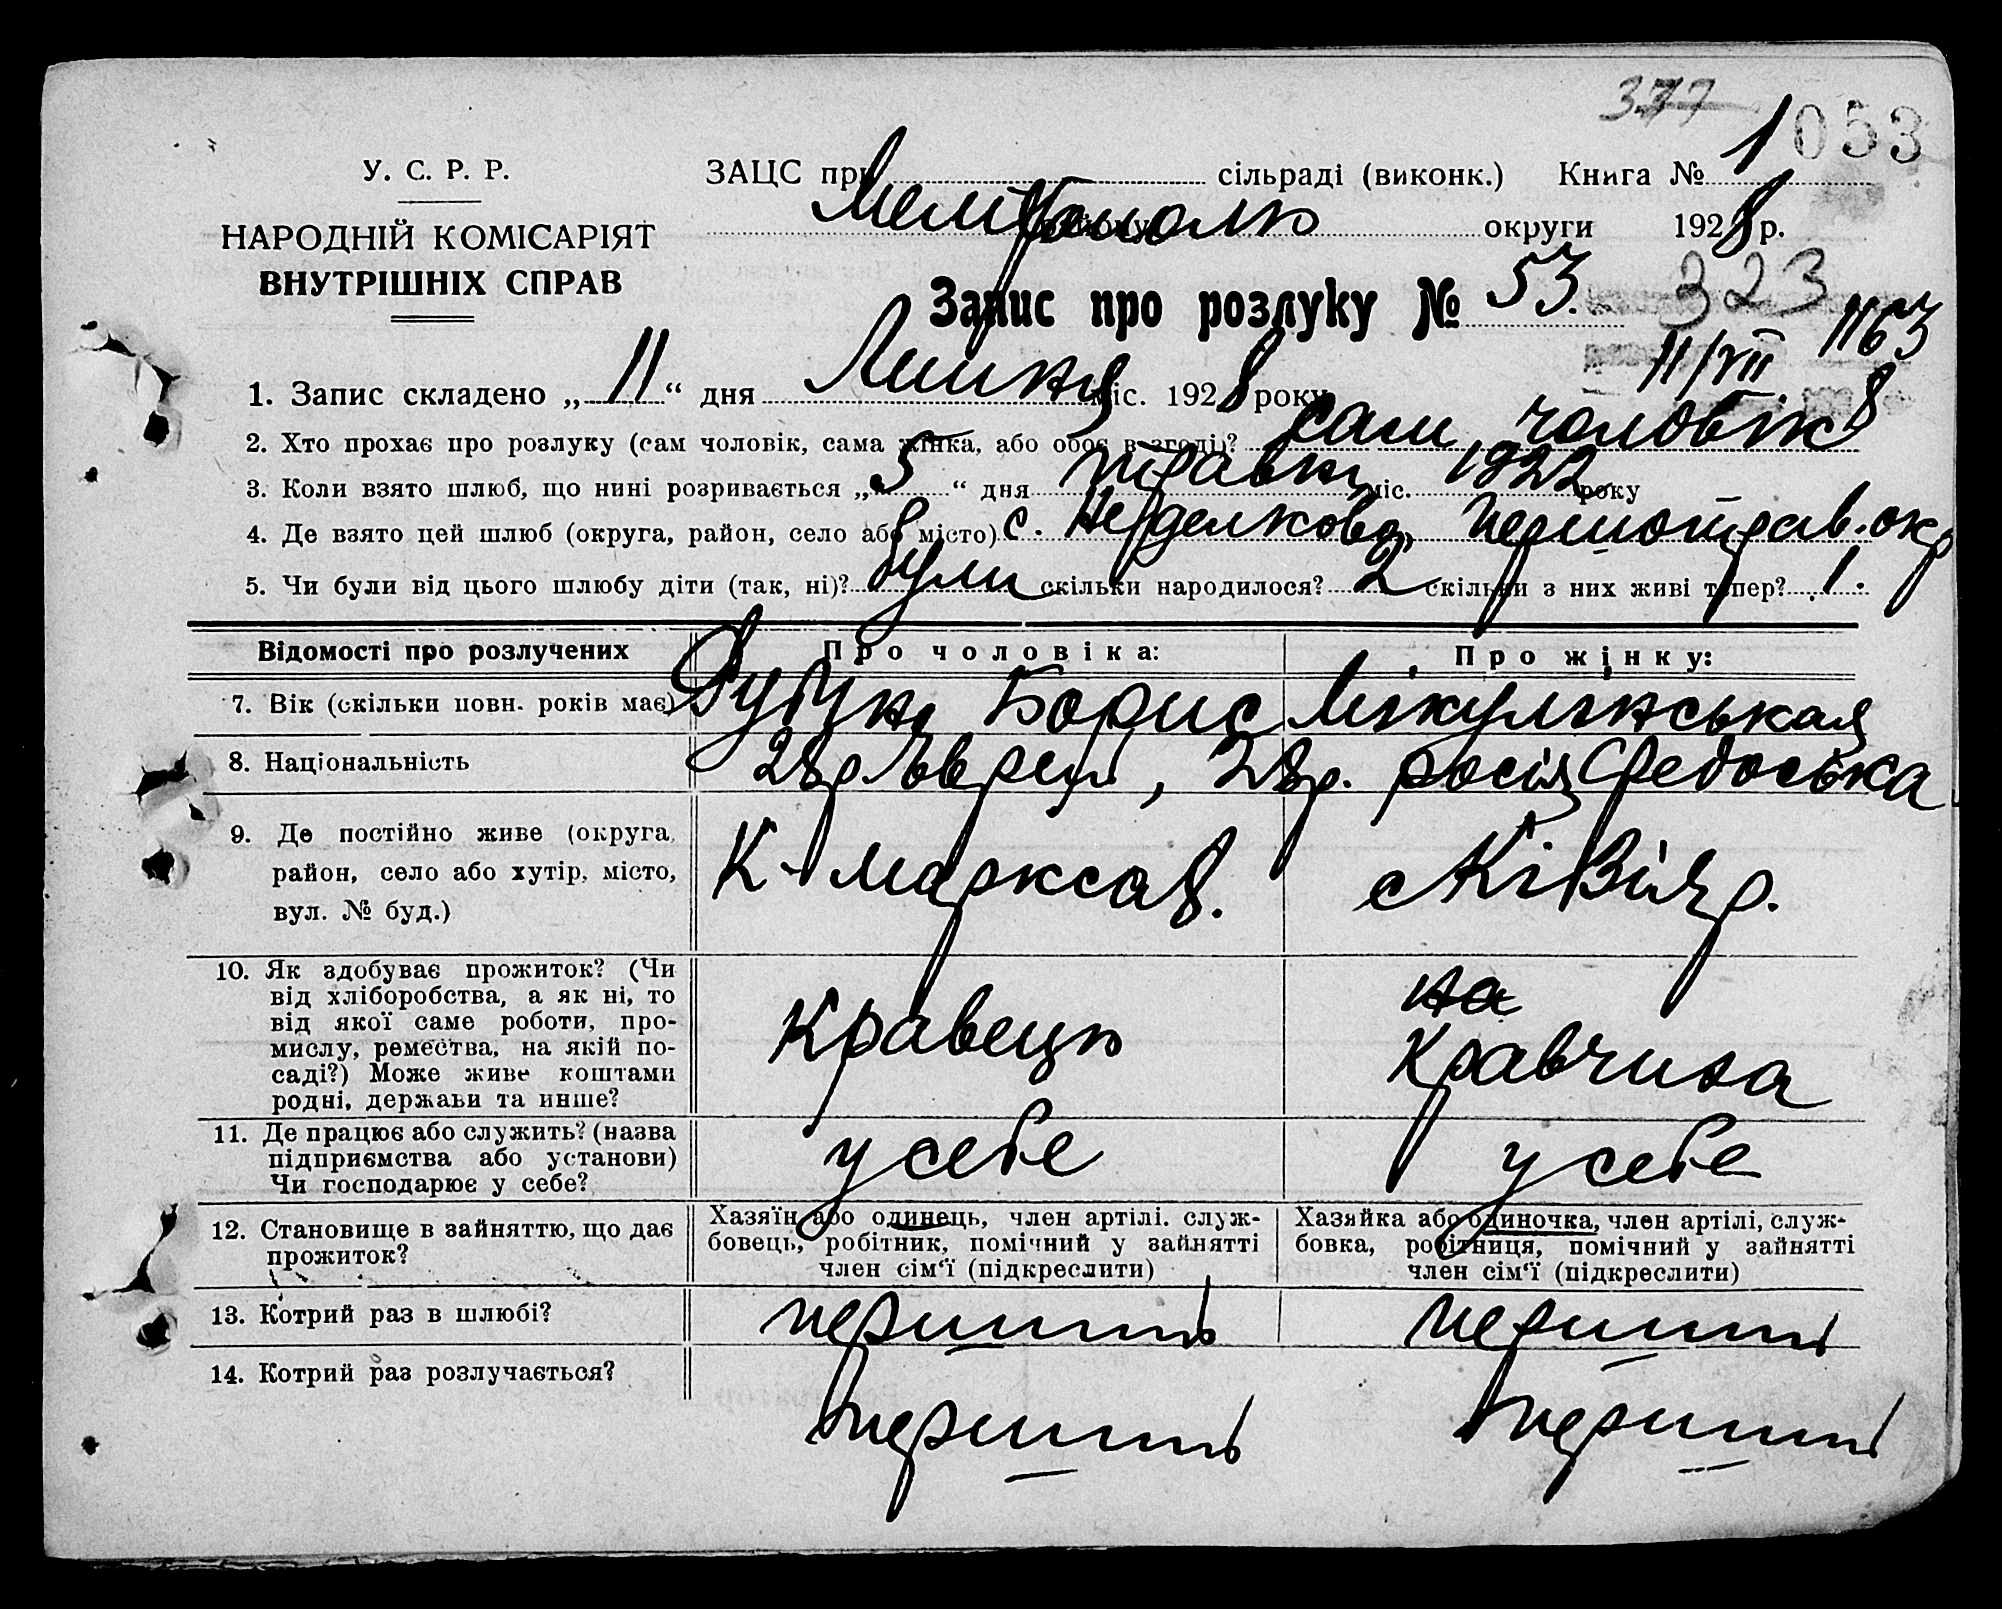 377
1 053
У. С. Р. Р.
ЗАЦС при сільраді (виконк.) Книга №
Мелітополь округи 1928 р.
НАРОДНІЙ КОМІСАРІЯТ
ВНУТРІШНІХ СПРАВ
Запис про розлуку № 53. 323
1163
11/VII 8
1. Запис складено „11“ дня Липня міс. 1928 року
2. Хто прохає про розлуку (сам чоловік, сама жінка, або обоє в згоді)? сам чоловік
3. Коли взято шлюб, що нині розривається „5“ дня травня міс. 1922 року
4. Де взято цей шлюб (округа, район, село або місто) с. Першотрав. окр
5. Чи були від цього шлюбу діти (так, ні)? були скільки народилося? 2 скільки з них живі тепер? 1.
Відомості про розлучених Про чоловіка: Про жінку:
7. Вік (скільки повн. років має) Борис Мікулінськая
8. Національність 28 р Єврей, 28 р. росія Федоська
9. Де постійно живе (округа,
район, село або хутір, місто,
вул. № буд.)
К-Маркса 8.
10. Як здобуває прожиток? (Чи
від хліборобства, а як ні, то
від якої саме роботи, про-
мислу, ремества, на якій по-
саді?) Може живе коштами
родні, держави та инше?
Кравець
на
Кравчиха
11. Де працює або служить? (назва
підприємства або установи)
Чи господарює у себе?
у себе у себе
12. Становище в зайняттю, що дає
прожиток?
Хазяїн або одинець, член артілі. служ-
бовець, робітник, помічний у зайнятті
член сім'ї (підкреслити)
Хазяйка або одиночка, член артілі, служ-
бовка, робітниця, помічний у зайнятті
член сім'ї (підкреслити)
13. Котрий раз в шлюбі? перший перший
14. Котрий раз розлучається?
перший перший